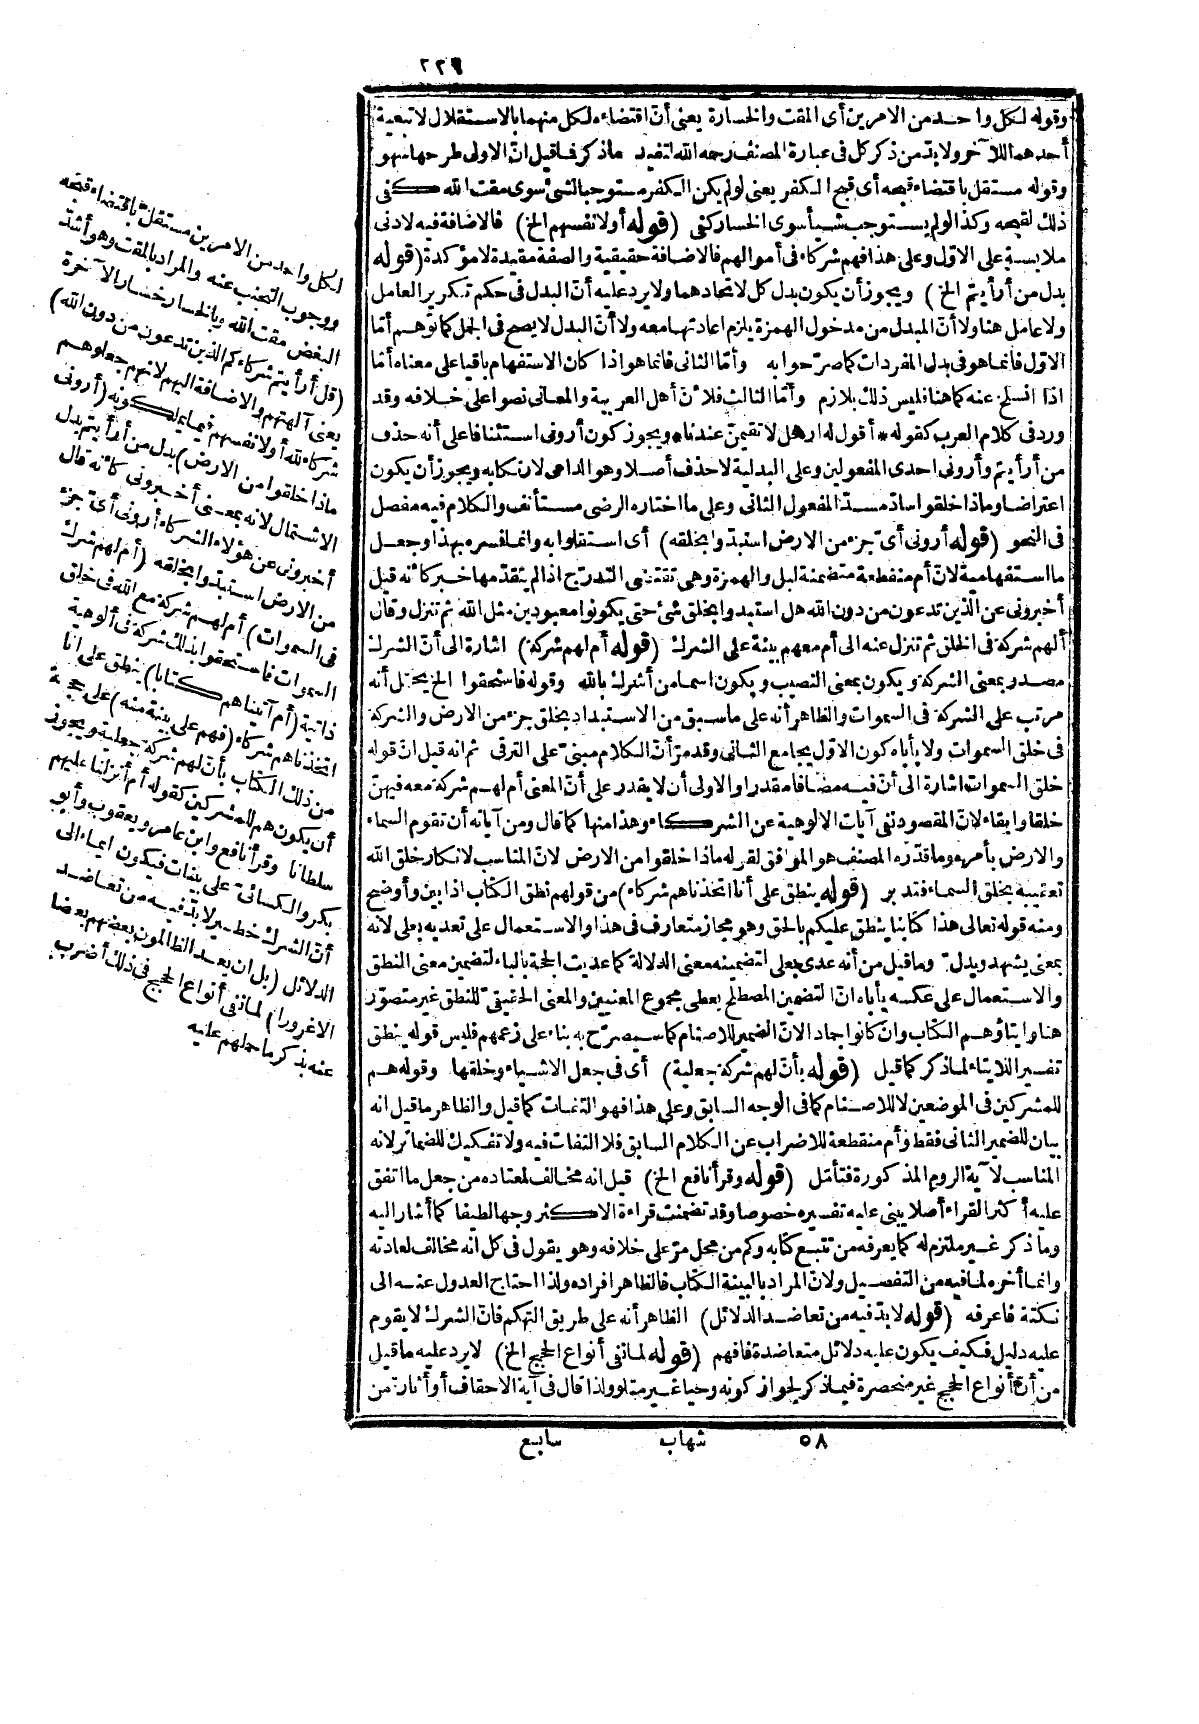 ٢٢٩
وقوله لكل واحد من الامرين أى المقت والخسارة يعنى أنّ اقتضاءه لكل منهما بالاستقلال لا تبعية
أحدهما للآخر ولابدّ من ذكر كل فى عبارة المصنف رحمه الله لتفيد ما ذكر فما قيل انّ الاولى طرحها سهو
وقوله مستقل باقتضاء قبحه أى قبح الكفر يعنى لو لم يكن الكفر مستوجبا لشئ سوى مقت الله كفى
ذلك لقبحه وكذا لو لم يستوجب شيأ سوى الخسار كفى (قوله أو لانفسهم الخ) فالاضافة فيه لادنى
ملابسة على الاوّل وعلى هذا فهم شركاء فى أموالهم فالاضافة حقيقية والصفة مقيدة لا مؤكدة (قوله
بدل من أرأيتم الخ) ويجوز أن يكون بدل كل لاتحادهما ولا يرد عليه أنّ البدل فى حكم تكرير العامل
ولا عامل هنا ولا أنّ المبدل من مدخول الهمزة يلزم اعادتها معه ولا أنّ البدل لا يصح فى الجمل كما توهم أمّا
الاوّل فانما هو فى بدل المفردات كما صرّحوا به وأمّا الثانى فانما هو اذا كان الاستفهام باقيا على معناه أمّا
اذا انسلخ عنه كما هنا فليس ذلك بلازم وأمّا الثالث فلانّ أهل العربية والمعانى نصوا على خلافه وقد
ورد فى كلام العرب كقوله * أقول له ارحل لا تقيمنّ عندنا * ويجوز كون أرونى استئنافا على أنه حذف
من أرأيتم وأرونى احدى المفعولين وعلى البدلية لا حذف أصلا وهو الداعى لارتكابه ويجوز أن يكون
اعتراضا وماذا خلقوا سادّ مسدّ المفعول الثانى وعلى ما اختاره الرضى مستأنف والكلام فيه مفصل
فى النحو (قوله أرونى أىّ جزء من الارض استبدّوا بخلقه) أى استقلوا به وانما فسره بهذا وجعل
ما استفهامية لانّ أم منقطعة متضمنة لبل والهمزة وهى تقتضى التدرّج اذا لم يتقدّمها خبر كأنه قيل
أخبرونى عن الذين تدعون من دون الله هل استبدوا بخلق شئ حتى يكونوا معبودين مثل الله ثم تنزل وقال
ألهم شركة فى الخلق ثم تنزل عنه الى أم معهم بينة على الشرك (قوله أم لهم شركة) اشارة الى أنّ الشرك
مصدر بمعنى الشركة ويكون بمعنى النصيب ويكون اسما من أشرك بالله وقوله فاستحقوا الخ يحتمل أنه
مرتب على الشركة فى السموات والظاهر أنه على ما سبق من الاستبداد بخلق جزء من الارض والشركة
فى خلق السموات ولا يأباه كون الاوّل يجامع الثانى وقد مرّ أنّ الكلام مبنىّ على الترقى ثم انه قيل انّ قوله
خلق السموات اشارة الى أنّ فيه مضافا مقدرا والاولى أن لا يقدر على أنّ المعنى أم لهم شركة معه فيهنّ
خلقا وابقاء لانّ المقصود نفى آيات الالوهية عن الشركاء وهذا منها كما قال ومن آياته أن تقوم السماء
والارض بأمره وما قدّره المصنف هو الموافق لقوله ماذا خلقوا من الارض لانّ المناسب لانكار خلق الله
تعقيبه بخلق السماء فتدبر (قوله ينطق على أنا اتخذناهم شركاء) من قولهم نطق الكتاب اذا بين وأوضح
ومنه قوله تعالى هذا كتابنا ينطق عليكم بالحق وهو مجاز متعارف فى هذا والاستعمال على تعديه بعلى لانه
بمعنى يشهد ويدلّ وما قيل من أنه عدى بعلى لتضمينه معنى الدلالة كما عديت الحجة بالباء لتضمين معنى النطق
والاستعمال على عكسه يأباه انّ التضمين المصطلح يعطى مجموع المعنيين والمعنى الحقيقىّ للنطق غير متصوّر
هنا وايتاؤهم الكتاب وان كانوا جمادا لانّ الضمير للاصنام كما سيصرّح به بناء على زعمهم فليس قوله ينطق
تفسيرا للايتاء لما ذكر كما قيل (قوله بأنّ لهم شركة جعلية) أى فى جعل الاشياء وخلقها وقوله هم
للمشركين فى الموضعين لا للاصنام كما فى الوجه السابق وعلى هذا فهو التفات كما قيل والظاهر ما قيل انه
بيان للضمير الثانى فقط وأم منقطعة للاضراب عن الكلام السابق فلا التفات فيه ولا تفكيك للضمائر لانه
المناسب لآية الروم المذكورة فتأمّل (قوله وقرأ نافع الخ) قيل انه مخالف لمعتاده من جعل ما اتفق
عليه أكثر القراء أصلا يبنى عليه تفسيره خصوصا وقد تضمنت قراءة الاكثر وجها لطيفا كما أشار اليه
وما ذكر غير ملتزم له كما يعرفه من تتبع كتابه وكم من محل مرّ على خلافه وهو يقول فى كل انه مخالف لعادته
وانما أخره لما فيه من التفصيل ولانّ المراد بالبينة الكتاب فالظاهر افراده ولذا احتاج العدول عنه الى
نكتة فاعرفه (قوله لابدّ فيه من تعاضد الدلائل) الظاهر أنه على طريق التهكم فانّ الشرك لا يقوم
عليه دليل فكيف يكون عليه دلائل متعاضدة فافهم (قوله لما نفى أنواع الحجج الخ) لا يرد عليه ما قيل
من أنّ أنواع الحجج غير منحصرة فيما ذكر لجواز كونه وحيا غير متلو ولذا قال فى آية الاحقاف أو أثارة من
لكل واحد من الامرين مستقل باقتضاء قبحه
ووجوب التجنب عنه والمراد بالمقت وهو أشدّ
البغض مقت الله وبالخسار خسار الآخرة
(قل أرأيتم شركاءكم الذين تدعون من دون الله)
يعنى آلهتهم والاضافة اليهم لانهم جعلوهم
شركاء لله أو لانفسهم فيما يملكونه (أرونى
ماذا خلقوا من الارض) بدل من أرأيتم بدل
الاشتمال لانه بمعنى أخبرونى كأنه قال
أخبرونى عن هؤلاء الشركاء أرونى أىّ جزء
من الارض استبدّوا بخلقه (أم لهم شرك
فى السموات) أم لهم شركة مع الله فى خلق
السموات فاستحقوا بذلك شركة فى ألوهية
ذاتية (أم آتيناهم كتابا) ينطق على انا
اتخذناهم شركاء (فهم على بينة منه) على حجة
من ذلك الكتاب بأنّ لهم شركة جعلية ويجوز
أن يكون هم للمشركين كقوله أم أنزلنا عليهم
سلطانا وقرأ نافع وابن عامر ويعقوب وأبو
بكر والكسائىّ على بينات فيكون ايماء الى
أنّ الشرك خطير لابدّ فيه من تعاضد
الدلائل (بل ان يعد الظالمون بعضهم بعضا
الا غرورا) لما نفى أنواع الحجج فى ذلك أضرب
عنه بذكر ما حملهم عليه
٥٨ شهاب سابع